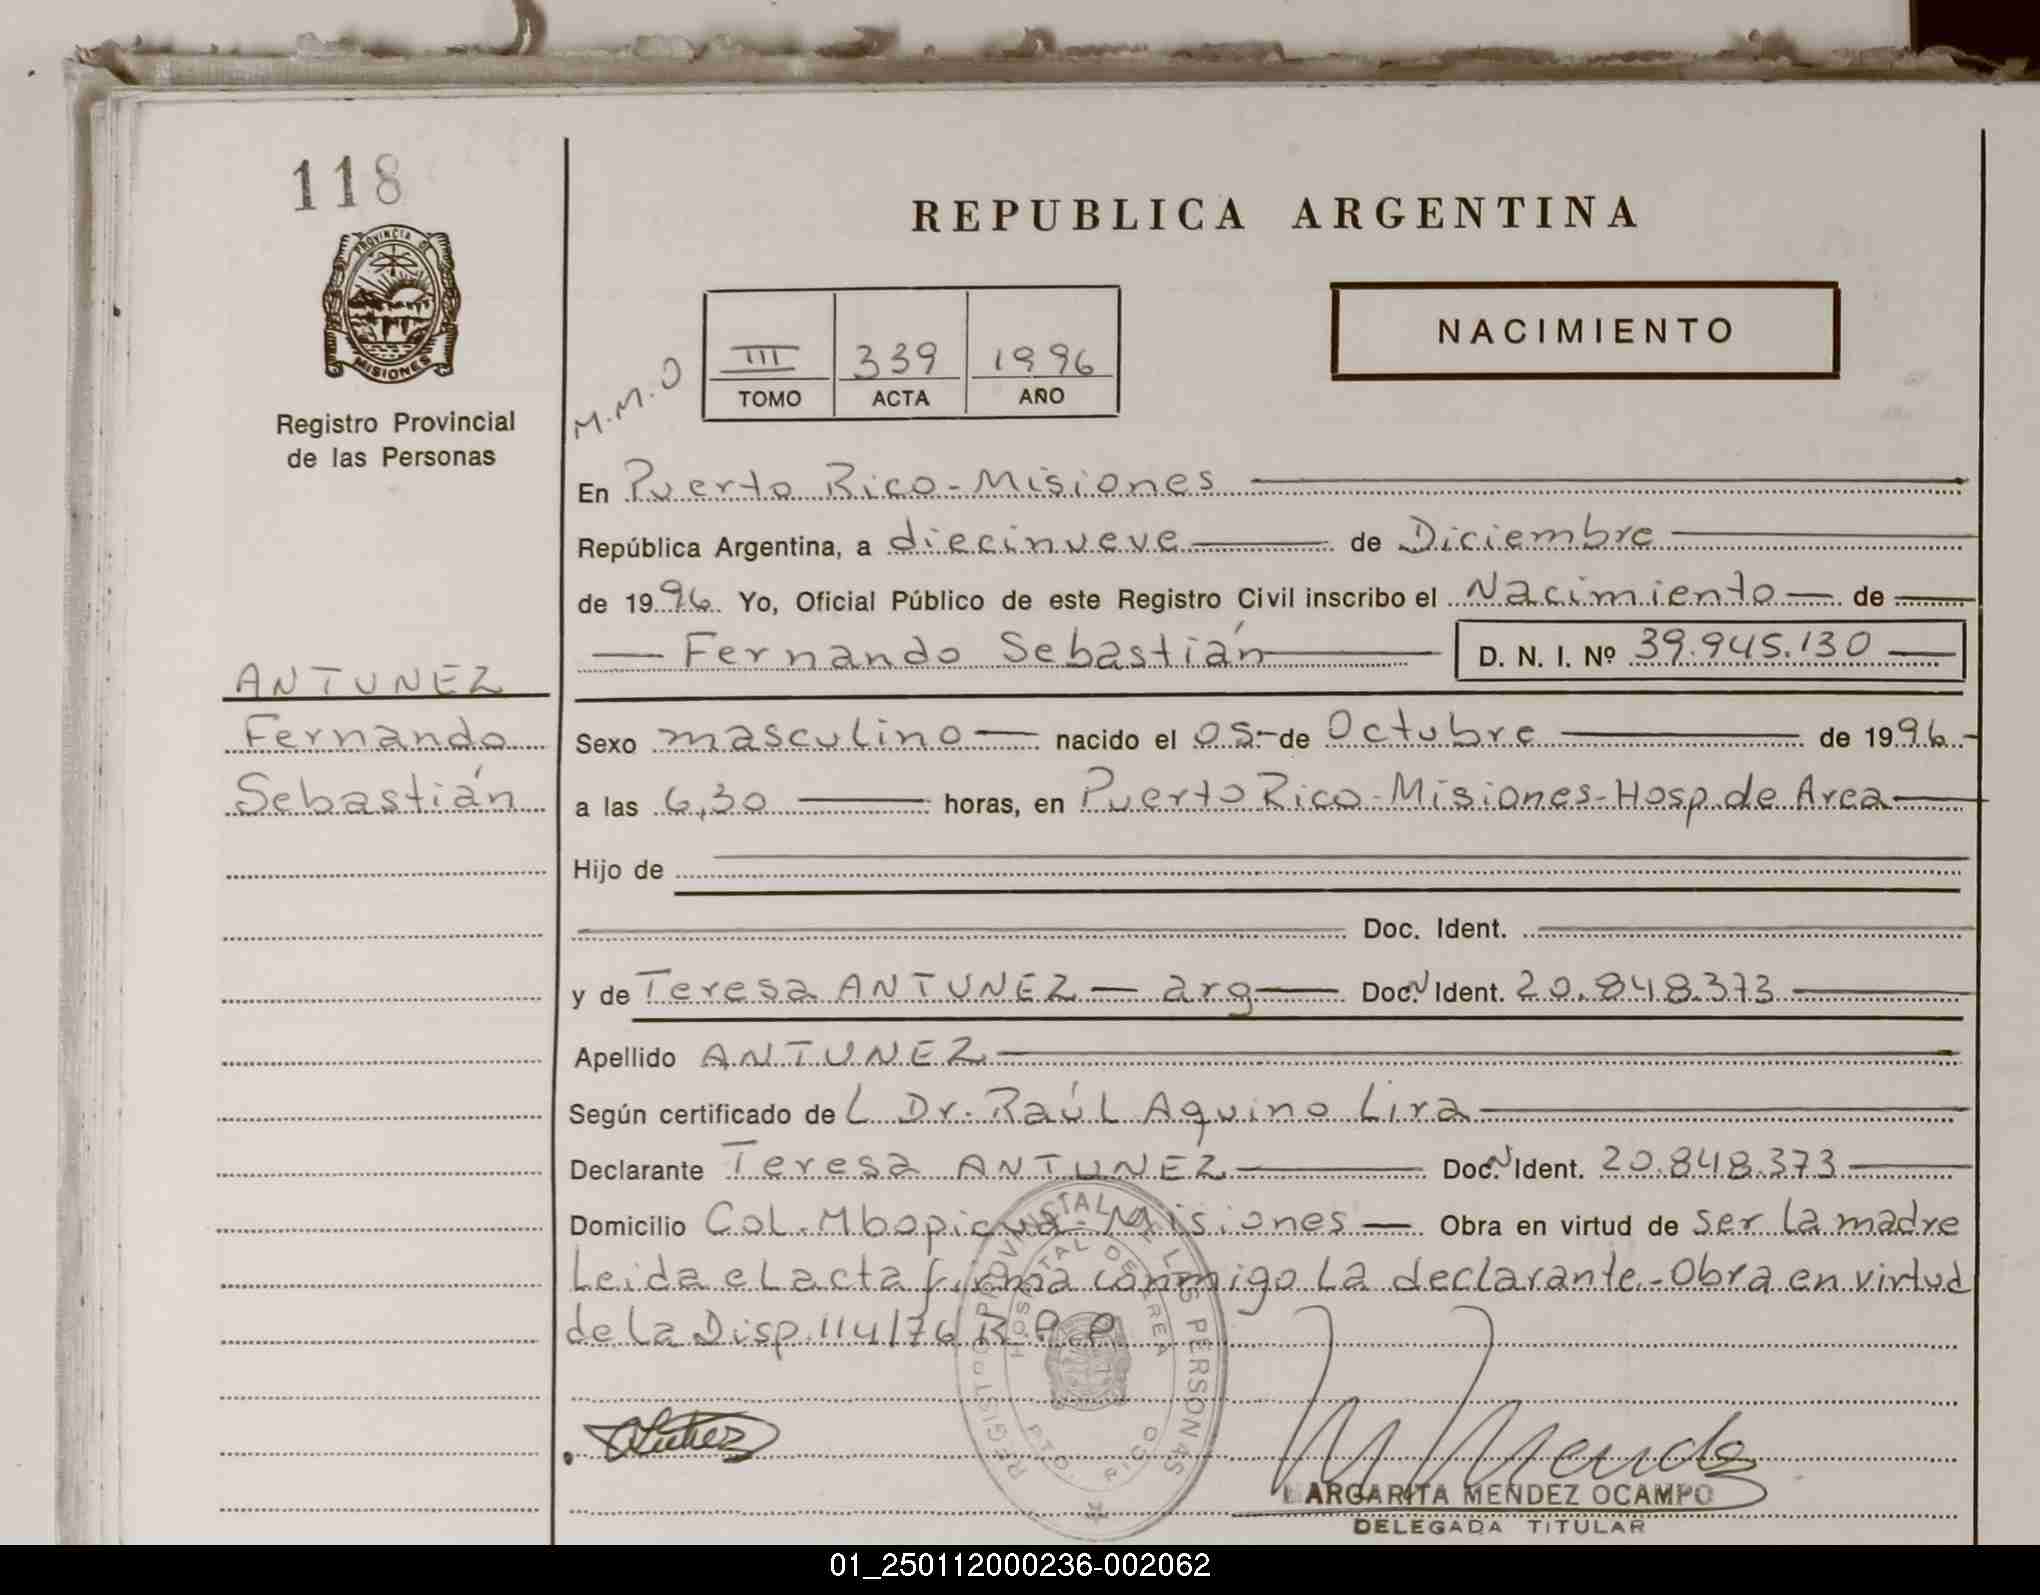 118
PROVINCIA DE
MISIONES
Registro Provincial
de las Personas
REPUBLICA ARGENTINA
NACIMIENTO
III 339 1996
TOMO ACTA AÑO
M.M.O
En Puerto Rico - Misiones
República Argentina, a diecinueve de Diciembre
de 1996. Yo, Oficial Público de este Registro Civil inscribo el Nacimiento de
Fernando Sebastián D. N. I. Nº 39.945.130
ANTUNEZ
Fernando
Sebastián
Sexo masculino nacido el 05 de Octubre de 1996
a las 6,30 horas, en Puerto Rico - Misiones - Hosp. de Area
Hijo de
Doc. Ident.
y de Teresa ANTUNEZ - arg Doc. N Ident. 20.848.373
Apellido ANTUNEZ
Según certificado de L Dr. Raúl Aquino Lira
Declarante Teresa ANTUNEZ Doc. N Ident. 20.848.373
Domicilio Col. Mbopicua - Misiones Obra en virtud de ser la madre
Leida el acta firma conmigo la declarante - Obra en virtud
de la Disp. 114/76 R.P.P
REGISTRO PROVINCIAL DE LAS PERSONAS
HOSPITAL DE AREA
PTO. RICO
MARGARITA MENDEZ OCAMPO
DELEGADA TITULAR
01_250112000236-002062